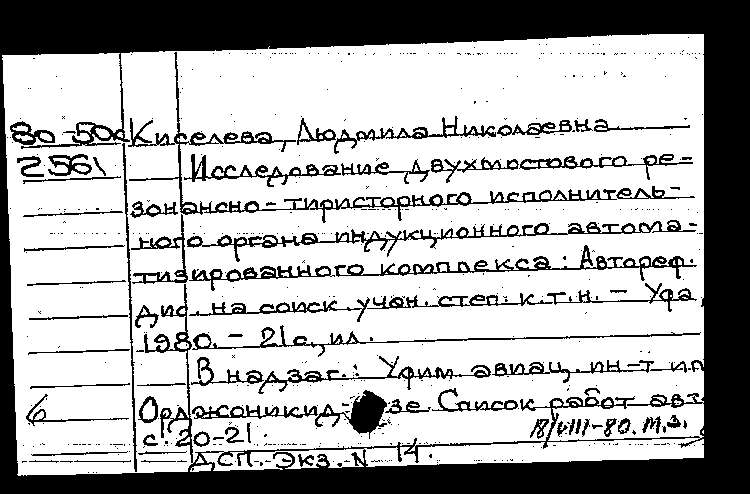 80-50с Киселева, Людмила Николаевна
2561 Исследование двухмостового ре-
зонансно-тиристорного исполнитель-
ного органа индукционного автома-
тизированного комплекса: Автореф.
дис. на соиск. учен. степ. к.т.н. – Уфа,
1980. – 21 с., ил.
В надзаг.: Уфим. авиац. ин-т им
6 Орджоникид- зе. Список работ авт.
с. 20-21. 18/VIII-80. М.З.
ДСП. Экз. N 14.